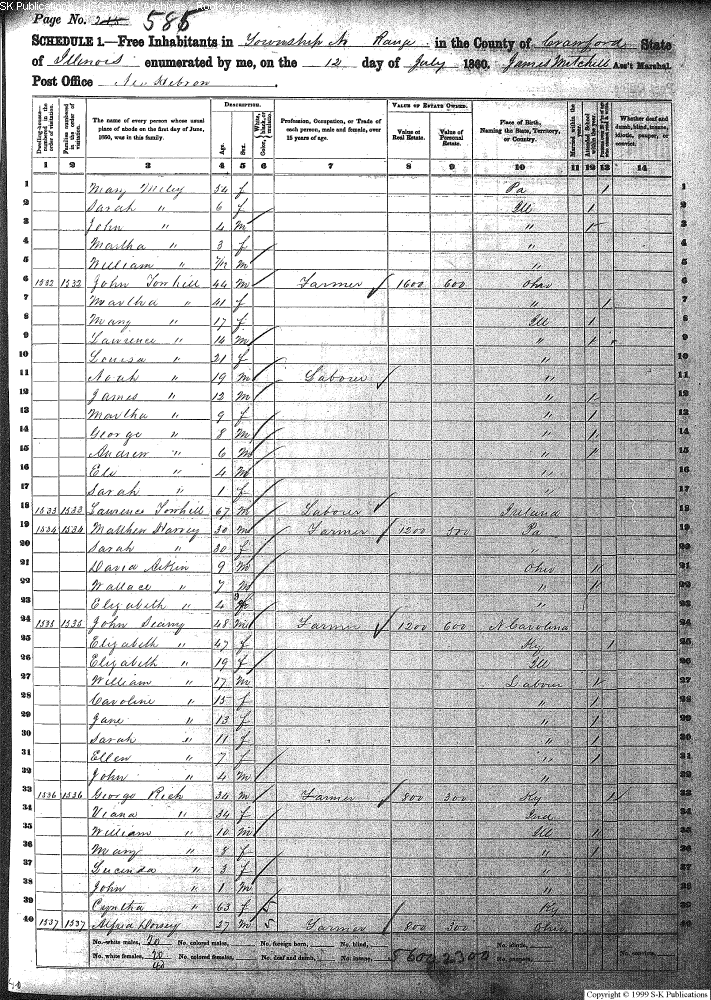 Page No. 245 585
SCHEDULE 1.—Free Inhabitants in Township No Range in the County of Crawford State
of Illinois enumerated by me, on the 12 day of July 1860. James Mitchell Ass't Marshal.
Post Office New Hebron
DESCRIPTION. VALUE OF ESTATE OWNED.
Dwelling-houses— numbered in the order of visitation. Families numbered in the order of visitation. The name of every person whose usual place of abode on the first day of June, 1860, was in this family. Age. Sex. Color, White, black, or mulatto. Profession, Occupation, or Trade of each person, male and female, over 15 years of age. Value of Real Estate. Value of Personal Estate. Place of Birth, Naming the State, Territory, or Country. Married within the year. Attended School within the year. Whether deaf and dumb, blind, insane, idiotic, pauper, or convict.
1 2 3 4 5 6 7 8 9 10 11 12 13 14
1 Mary 54 f Pa 1 1
2 Sarah " 6 f Ill 1 2
3 John " 4 m " 1 3
4 Martha " 3 f " 4
5 William " m " 5
6 1532 1532 John Towhill 44 m Farmer 1600 600 Ohio 6
7 Martha " 41 f " 1 7
8 Mary " 17 f Ill 1 8
9 Lawrence " 14 m " 1 9
10 Louisa " 21 f " 10
11 Noah " 19 m Labour " 11
12 James " 12 m " 1 12
13 Martha " 9 f " 1 13
14 George " 8 m " 1 14
15 Andrew " 6 m " 1 15
16 Eli " 4 m " 16
17 Sarah " 1 f " 17
18 1533 1533 Lawrence Towhill 67 m Labour Ireland 18
19 1534 1534 Matthew Harvey 30 m Farmer 1200 500 Pa 19
20 Sarah " 30 f " 20
21 David Aitkin 9 m Ohio 21
22 Wallace " 7 m " 22
23 Elizabeth " 4 f " 23
24 1535 1535 John Seany 48 m Farmer 1200 600 N Carolina 24
25 Elizabeth " 47 f Ky 1 25
26 Elizabeth " 19 f Ill 26
27 William " 17 m Labour 1 27
28 Caroline " 15 f " 1 28
29 Jane " 13 f " 1 29
30 Sarah " 11 f " 1 30
31 Ellen " 7 f " 1 31
32 John " 4 m " 32
33 1536 1536 George Rich 34 m Farmer 800 300 Ky 1 33
34 Viana " 34 f Ind 34
35 William " 10 m Ill 35
36 Mary " 8 f " 1 36
37 Lucinda " 3 f " 37
38 John " 1 m " 38
39 Cyntha " 63 f Ky 39
40 1537 1537 Alfred Dorsey 27 m Farmer 800 300 Ohio 40
No. white males, 20 No. colored males, No. foreign born, No. blind, No. idiotic, No. convicts,
No. white females, 20 No. colored females, No. deaf and dumb, No. insane, 5600 2300 No. paupers,
40
Copyright © 1999 S-K Publications